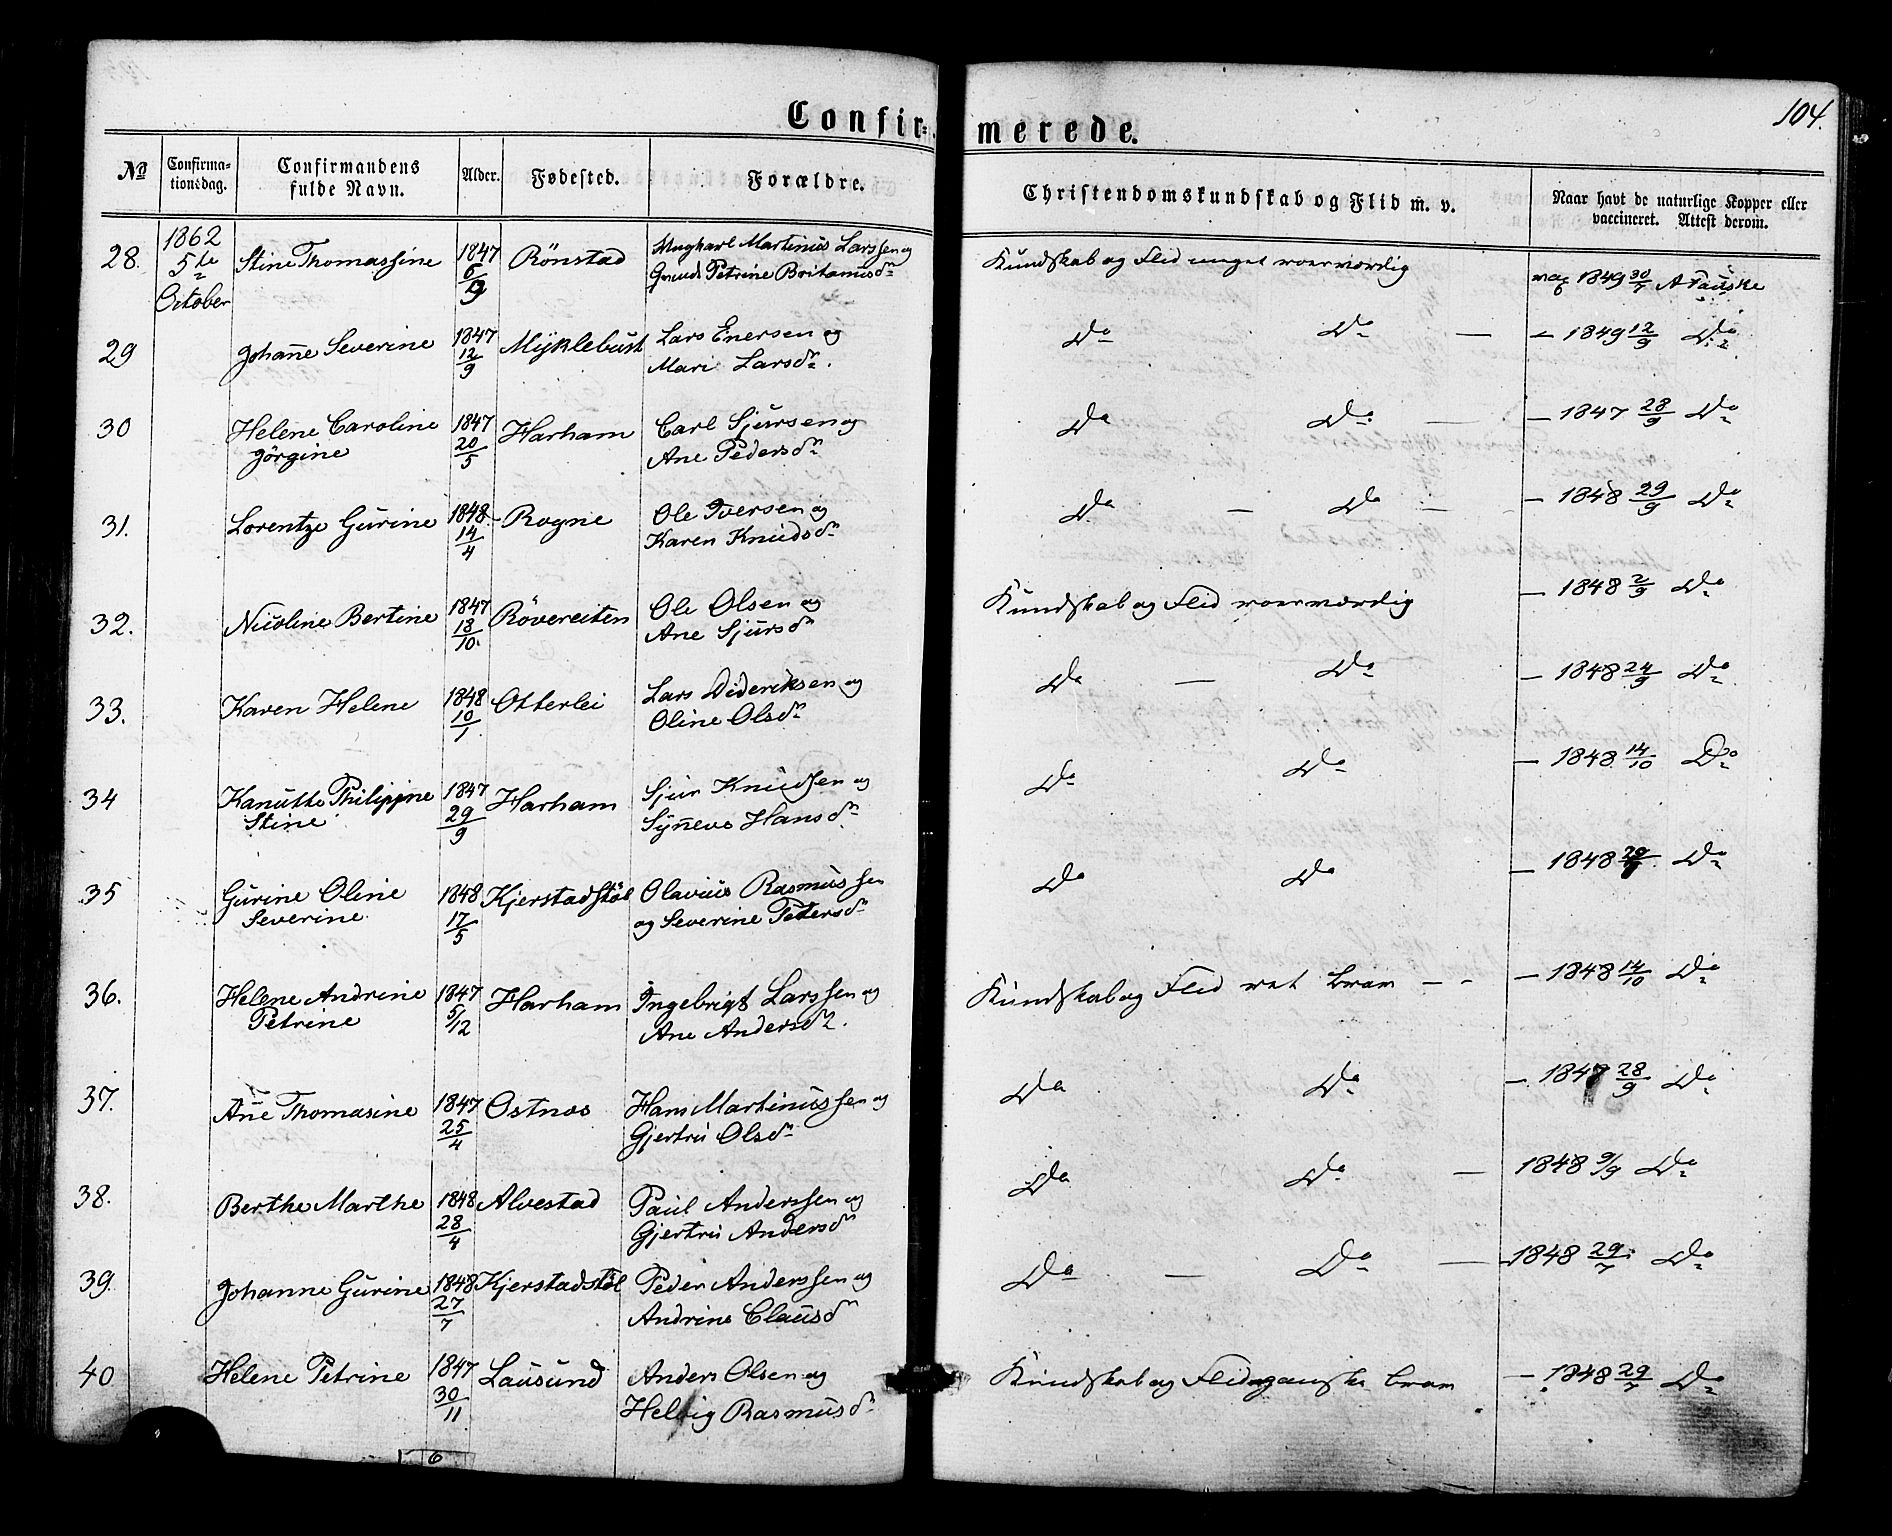 Confir-merede.
104.
No Confirma-tionsdag. Confirmandens fulde Navn. Alder. Fødested. Forældre. Christendomskundskab og Flid m. v. Naar havt de naturlige Kopper eller vaccineret. Attest derom.
28. 1862 5te October Stine Thomassine 1847 Rönstad Martinus Larssen og Petrine Kundskab og Flid meget roesværdig vac 1849 30/7 A Tauske
29 Johanne Severine 1847 12/9 Myklebust Lars Enersen og Mari Larsdr. Do Do — – 1849 12/9 Do
30 Helene Caroline Jörgine 1847 20/5 Harham Carl Sjursen og Ane Pedersdr Do Do — – 1847 28/9 Do
31. Lorentze Gurine 1848 14/4 Rogne Ole Iversen og Karen Knudsdr Do — Do — – 1848 29/9 Do
32. Nicoline Bertine 1847 18/10. Rövereiten Ole Olsen og Ane Sjursdr Kundskab og Flid roesværdig – 1848 2/9 Do
33. Karen Helene 1848 10/1 Otterlei Lars Dideriksen og Oline Olsdr Do — Do – 1848 24/9 Do
34 Kanutte Philippine Stine 1847 29/9 Harham Sjur Knudsen og Synneve Hansdr Do Do – 1848 14/10 Do
35 Gurine Oline Severine 1848 17/5 Kjerstadstöl Olavius Rasmussen og Severine Petersdr Do Do – 1848 Do
36. Helene Andrine Petrine 1847 5/12 Harham Ingebrigt Larssen og Ane Andersdr. Kundskab og Flid ret brav – – – 1848 14/10 Do
37. Anne Thomasine 1847 25/4 Ostnæs Hans Martinussen og Gjertru Olsdr Do Do – 1847 28/9 Do
38. Berthe Marthe 1848 28/4 Alvestad Paul Anderssen og Gjertru Andersdr Do Do — 1848 9/9 Do
39. Johanne Gurine 1848 27/7 Kjerstadstöl Peder Anderssen og Andrine Clausdr Do — Do — 1848 29/7 Do
40 Helene Petrine 1847 30/11 Lausund Anders Olsen og Helvig Rasmusdr Kundskab og Flid ganske brav – 1848 29/7 Do
6